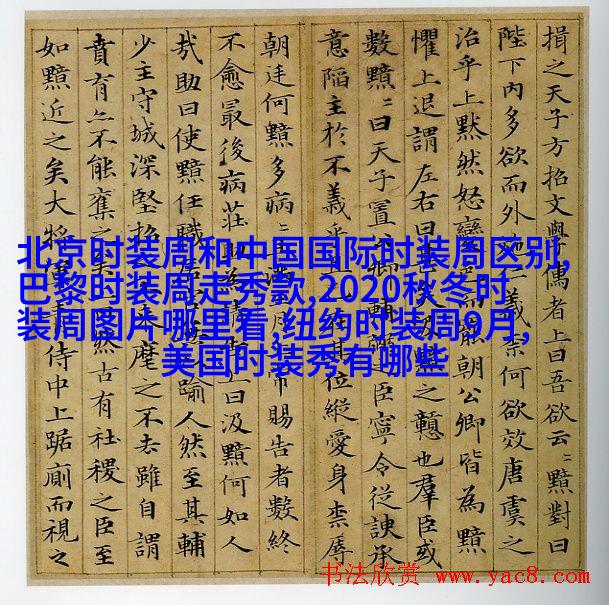 揖之天子方招文學儒者上曰吾欲云〻黯對曰
陛下內多欲而外施仁義柰何欲效唐虞之
治乎上黙然怒變色而罷朝公卿皆為黯
懼上退謂左右曰甚矣汲黯之戇也羣臣或
數黯〻曰天子置公卿輔弼之臣寧令從諛承
意陷主於不義乎且已在其位縱愛身柰辱
朝廷何黯多病〻且滿三月上常賜告者數終
不愈最後病莊助為請告上曰汲黯何如人
㢤助曰使黯任職居官無以踰人然至其輔
少主守城深堅招之不来麾之不去雖自謂
賁育亦不能奪之矣上曰然古有社稷之臣至
如黯近之矣大將軍青侍中上踞廁而視之
北京时装周和中国国际时装周区别,
巴黎时装周走秀款,2020秋冬时
装周图片哪里看,纽约时装周9月,
美国时装秀有哪些
书法欣赏 www.yac8.com